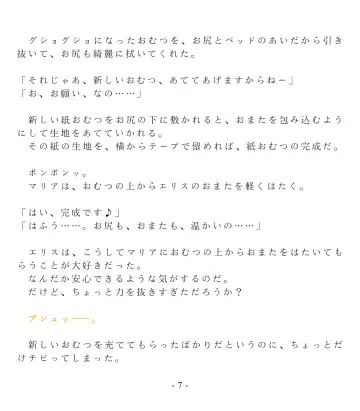 グショグショになったおむつを、お尻とベッドのあいだから引き
抜いて、お尻も綺麗に拭いてくれた。
「それじゃあ、新しいおむつ、あててあげますからねー」
「お、お願い、なの……」
新しい紙おむつをお尻の下に敷かれると、おまたを包み込むよう
にして生地をあてていかれる。
その紙の生地を、横からテープで留めれば、紙おむつの完成だ。
ポンポンッ。
マリアは、おむつの上からエリスのおまたを軽くはたく。
「はい、完成です♪」
「はふう……。お尻も、おまたも、温かいの……」
エリスは、こうしてマリアにおむつの上からおまたをはたいても
らうことが大好きだった。
なんだか安心できるような気がするのだ。
だけど、ちょっと力を抜きすぎただろうか？
プシュッ――。
新しいおむつを充ててもらったばかりだというのに、ちょっとだ
けチビってしまった。
- 7 -